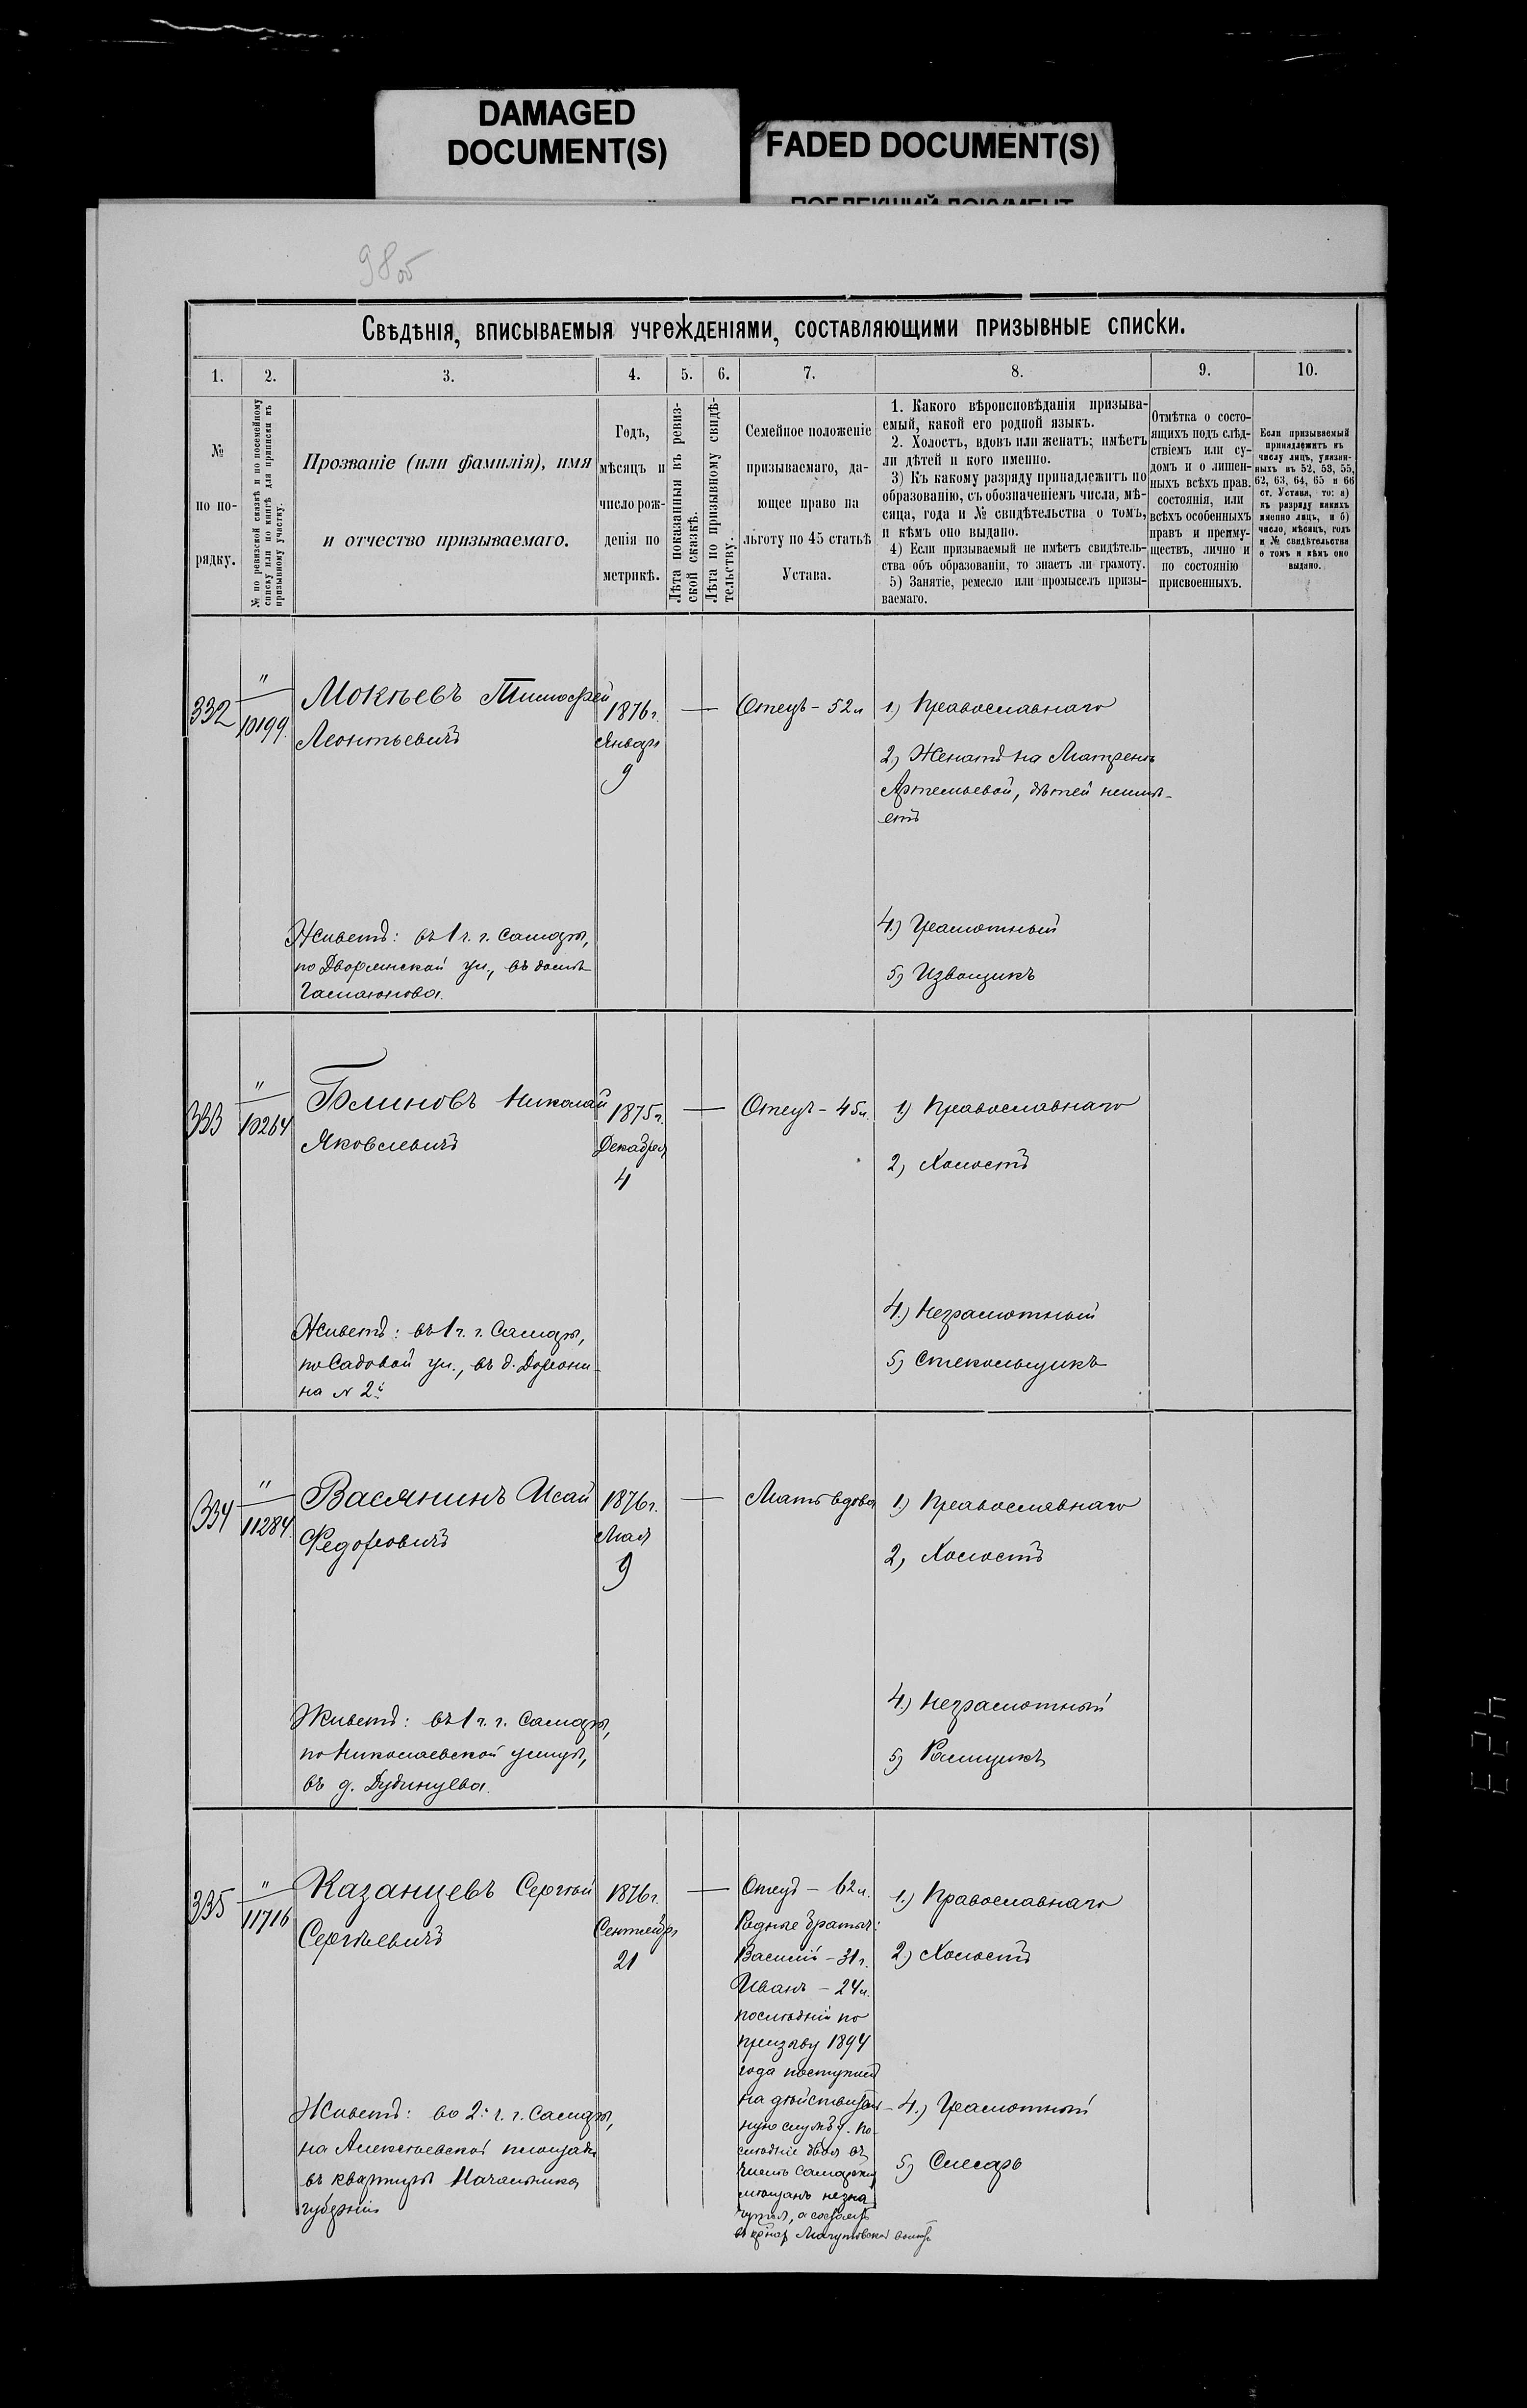 DAMAGED
DOCUMENT(S)
FADED DOCUMENT(S)
98об
Свѣдѣнія, вписываемыя учрежденіями, составляющими призывные списки.
1. 2. 3. 4. 5. 6. 7. 8. 9. 10.
№
по по-
рядку.
№ по ревизской сказкѣ и по посемейному
списку или по книгѣ для приписки къ
призывному участку.
Прозваніе (или фамилія), имя
и отчество призываемаго.
Годъ,
мѣсяцъ и
число рож-
денія по
метрикѣ.
Лѣта показанныя въ ревиз-
ской сказкѣ.
Лѣта по призывному свидѣ-
тельству.
Семейное положеніе
призываемаго, да-
ющее право на
льготу по 45 статьѣ
Устава.
1. Какого вѣроисповѣданія призыва-
емый, какой его родной языкъ.
2. Холостъ, вдовъ или женатъ; имѣетъ
ли дѣтей и кого именно.
3) Къ какому разряду принадлежитъ по
образованію, съ обозначеніемъ числа, мѣ-
сяца, года и № свидѣтельства о томъ,
и кѣмъ оно выдано.
4) Если призываемый не имѣетъ свидѣтель-
ства объ образованіи, то знаетъ ли грамоту.
5) Занятіе, ремесло или промыселъ призы-
ваемаго.
Отмѣтка о состо-
ящихъ подъ слѣд-
ствіемъ или су-
домъ и о лишен-
ныхъ всѣхъ прав.
состоянія, или
всѣхъ особенныхъ
правъ и преиму-
ществъ, лично и
по состоянію
присвоенныхъ.
Если призываемый
принадлежитъ къ
числу лицъ, указан-
ныхъ въ 52, 53, 55,
62, 63, 64, 65 и 66
ст. Устава, то: а)
къ разряду какихъ
именно лицъ, и б)
число, мѣсяцъ, годъ
и № свидѣтельства
о томъ и кѣмъ оно
выдано.
332
"
10199.
Мокѣевъ Тимофей
Леонтьевичъ
Живетъ: въ 1 ч. г. Самары,
по Дворянской ул., въ домѣ
1876 г.
Января
9
—
Отецъ – 52 л
1.) Православнаго
2.) Женатъ на Матренѣ
Артемьевой, дѣтей неимѣ-
етъ
4.) Грамотный
5) Извощикъ
333
"
10264
Блиновъ Николай
Яковлевичъ
Живетъ: въ 1 ч. г. Самары,
по Садовой ул., въ д. Дорони-
на № 2й
1875 г.
Декабря
4
—
Отецъ – 45 л.
1) Православнаго
2) Холостъ
4.) Неграмотный
5) Стекольщикъ
334
"
11284.
Васянинъ Исай
Федоровичъ
Живетъ: въ 1 ч. г. Самары,
по Николаевской улицѣ,
въ д. Дудинцева.
1876 г.
Мая
9
—
Мать вдова
1.) Православнаго
2) Холостъ
4.) Неграмотный
5)
335
"
11716
Казанцевъ Сергѣй
Сергѣевичъ
Живетъ: во 2й ч. г. Самары,
на Алексѣевской площади
въ квартирѣ Начальника
губерніи
1876 г.
Сентября
21
—
Отецъ – 62 л.
Родные братья:
Василій – 31 г.
Иванъ – 24 л.
послѣдній по
призыву 1894
года поступилъ
на дѣйствитель-
ную службу. По-
слѣдніе двое въ
числѣ Самарских
мѣщанъ незна-
чутся, а состоятъ
1.) Православнаго
2.) Холостъ
4.) Грамотный
5) Слесарь
423